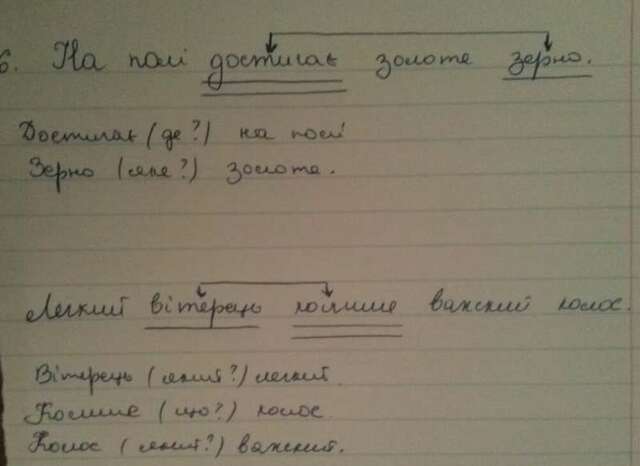 6. На полі достигає золоте зерно.
Достигає (де?) на полі
Зерно (яке?) золоте.
Легкий вітерець колише важкий колос.
Вітерець (який?) легкий.
Колише (що?) колос
Колос (який?) важкий.